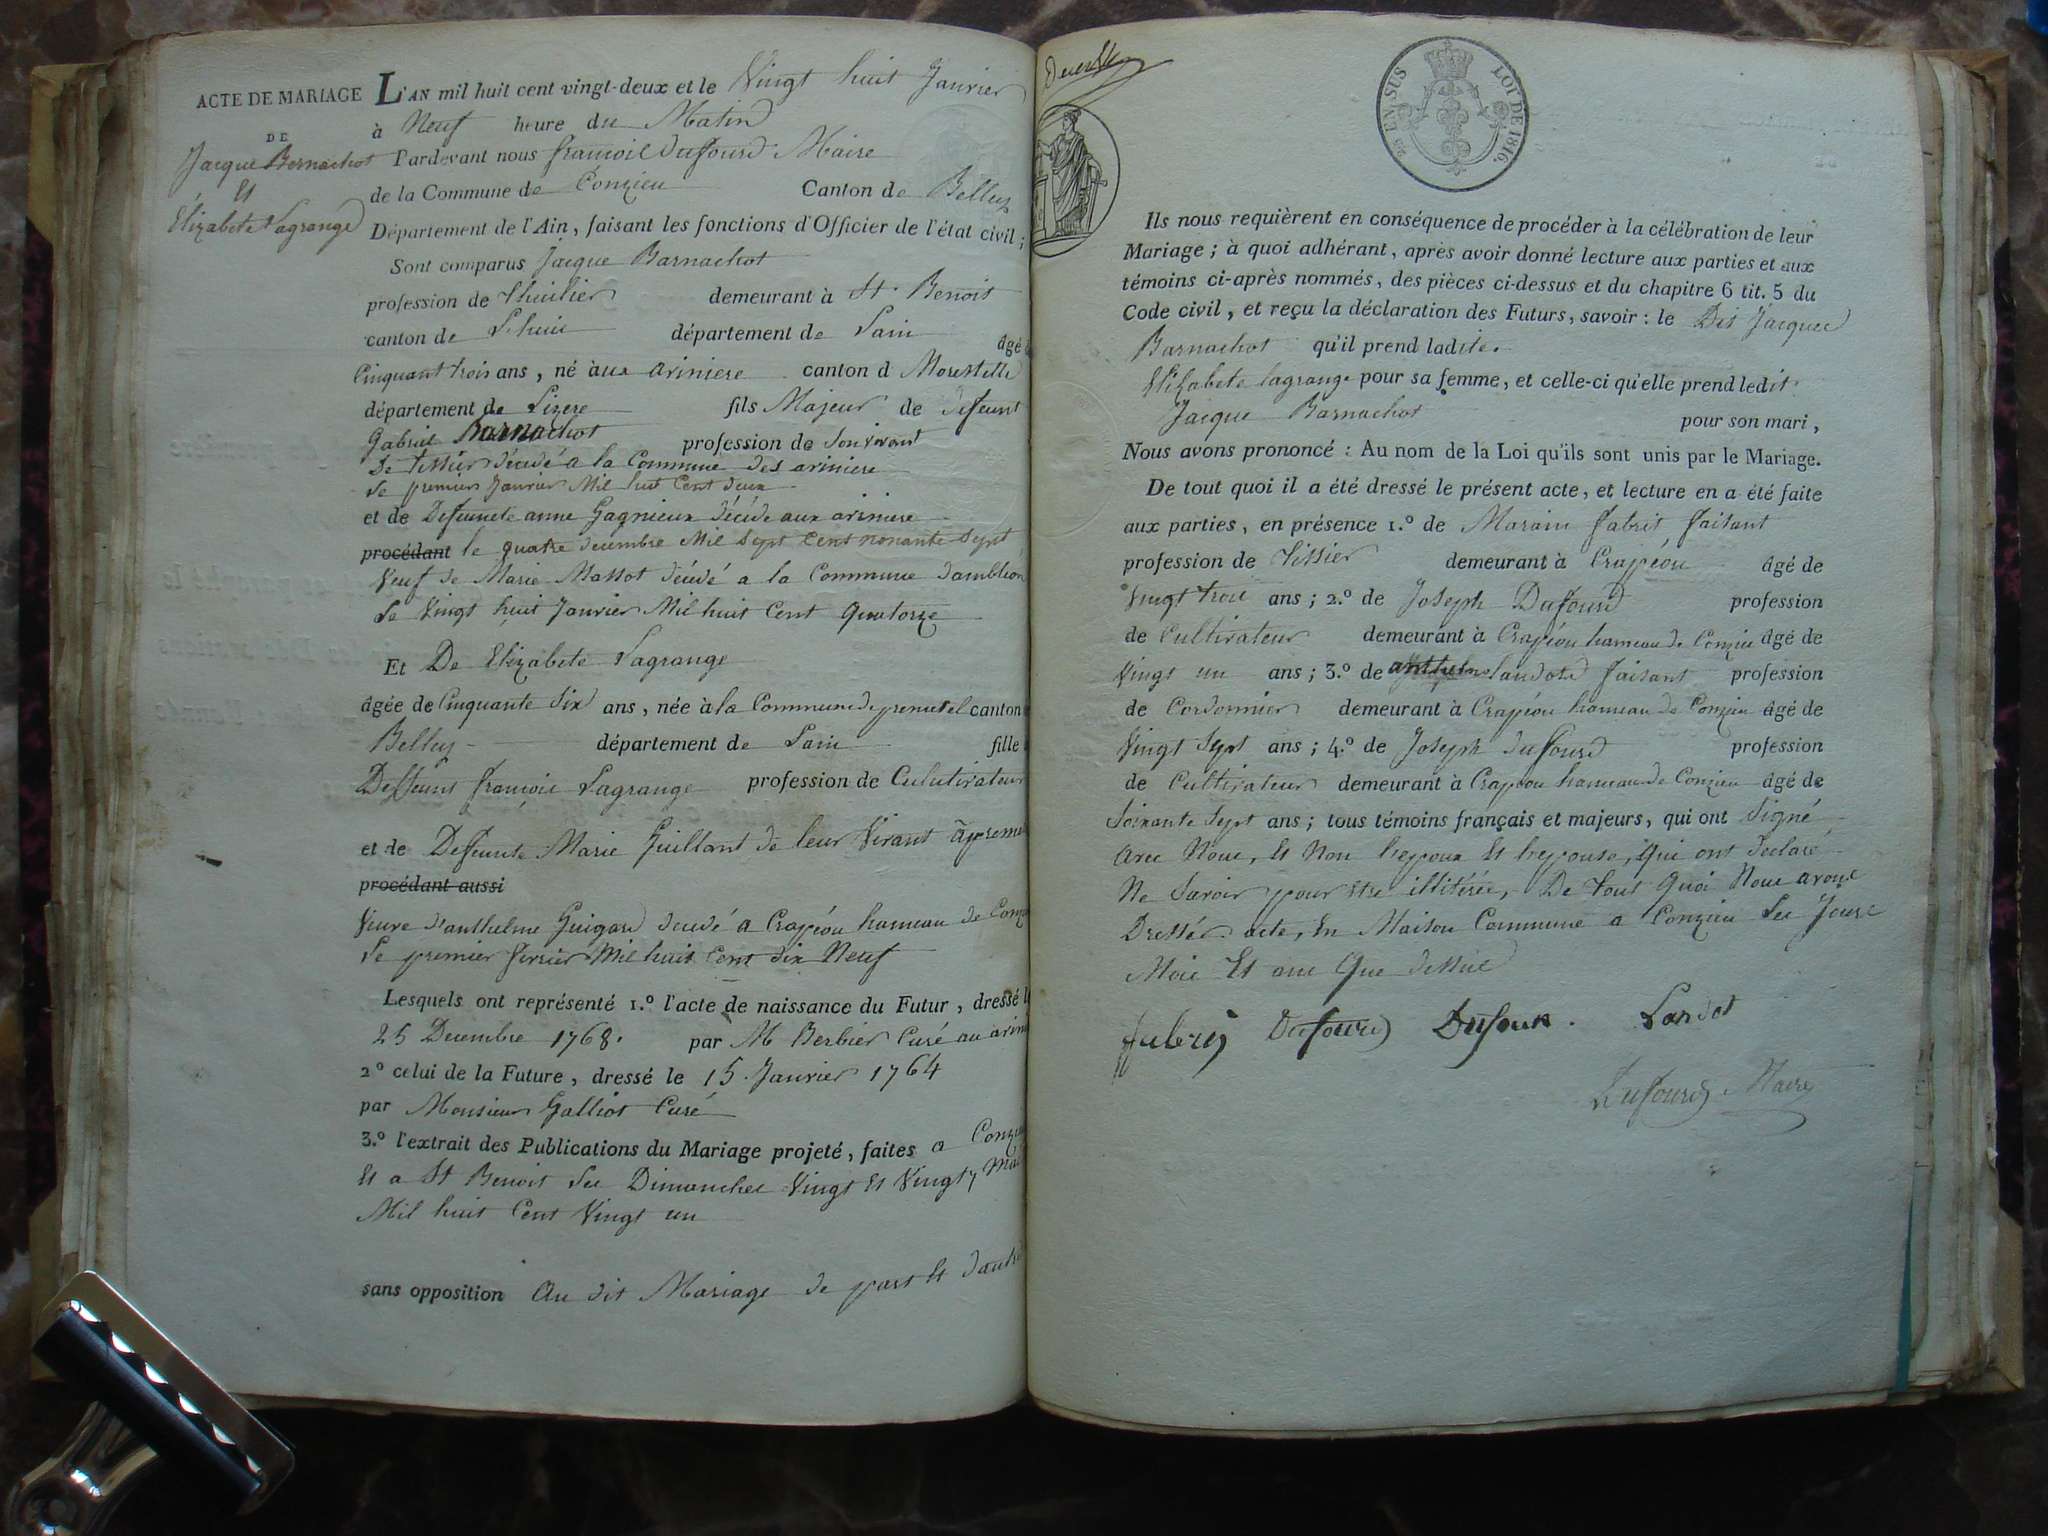 ACTE DE MARIAGE
DE
Jacque Bernachot
Et
Elizabete Lagrange
L'AN mil huit cent vingt-deux et le Vingt huit Janvier
à Neuf heure du Matin
Pardevant nous francois Dufourd Maire
de la Commune de Conzieu Canton de Belley
Département de l'Ain, faisant les fonctions d'Officier de l'état civil;
Sont comparus Jacque Barnachot
profession de Thuilier demeurant à St. Benoit
canton de Lhuis département de Lain âgé
Cinquant trois ans, né aux ariniere canton d Morestelle
département de Lizere fils Majeur de deffeunt
Gabriel Barnachot profession de Sonvivant
De tissier décédé a la Commune des ariniere
Le premier Janvier Mil huit Cent deux
et de Deffeunte anne Gagnieux décédé aux ariniere
procédant le quatre decembre Mil Sept Cent nonante Sept
Veuf de Marie Massot décédé a la Commune dambléon
Le Vingt huit Janvier Mil huit Cent quatorze
Et De Elizabete Lagrange
âgée de Cinquante Six ans, née à la Commune de premeisel canton
Belley département de Lain fille
Deffeunt francois Lagrange profession de Culutivateur
et de Deffeunte Marie Guillant de leur Vivant à preme
procédant aussi
Veuve d'anthelme Guigard décédé a Crapéou hameau de Conz
Le premier fevrier Mil huit Cent dix Neuf
Lesquels ont représenté 1.º l'acte de naissance du Futur, dressé l
25 Decembre 1768. par M Berbier Curé au arini
2º celui de la Future, dressé le 15 Janvier 1764
par Monsieur Galliot Curé
3.º l'extrait des Publications du Mariage projeté, faites a Conzieu
Et a St Benoit Les Dimanches Vingt Et Vingt 7 Mai
Mil huit Cent Vingt un
sans opposition Au dit Mariage de part Et dautre
EN SUS
LOI DE 1816.
Ils nous requièrent en conséquence de procéder à la célébration de leur
Mariage; à quoi adhérant, après avoir donné lecture aux parties et aux
témoins ci-après nommés, des pièces ci-dessus et du chapitre 6 tit. 5 du
Code civil, et reçu la déclaration des Futurs, savoir: le Dit Jacque
Barnachot qu'il prend ladite.
Elizabete lagrange pour sa femme, et celle-ci qu'elle prend ledit
Jacque Barnachot pour son mari,
Nous avons prononcé: Au nom de la Loi qu'ils sont unis par le Mariage.
De tout quoi il a été dressé le présent acte, et lecture en a été faite
aux parties, en présence 1.º de Marain fabrit faisant
profession de Tissier demeurant à Crapéou âgé de
Vingt trois ans; 2.º de Joseph Dufourd profession
de Cultivateur demeurant à Crapéou hameau de Conzieu âgé de
Vingt un ans; 3.º de anthelme landot faisant profession
de Cordonnier demeurant à Crapéou hameau de Conzieu âgé de
Vingt Sept ans; 4.º de Joseph dufourd profession
de Cultivateur demeurant à Crapéou hameau de Conzieu âgé de
Soixante Sept ans; tous témoins français et majeurs, qui ont Signé
Avec Nous, Et Non heppoux Et heppouse, qui ont declaré
Ne Savoir pour Etre illitérée, De tout Quoi Nous avons
Dressés acte, En Maison Commune a Conzieu Les Jours
Mois Et ans Que dessus
Dufourd Dufour. Landot
Dufourd Maire